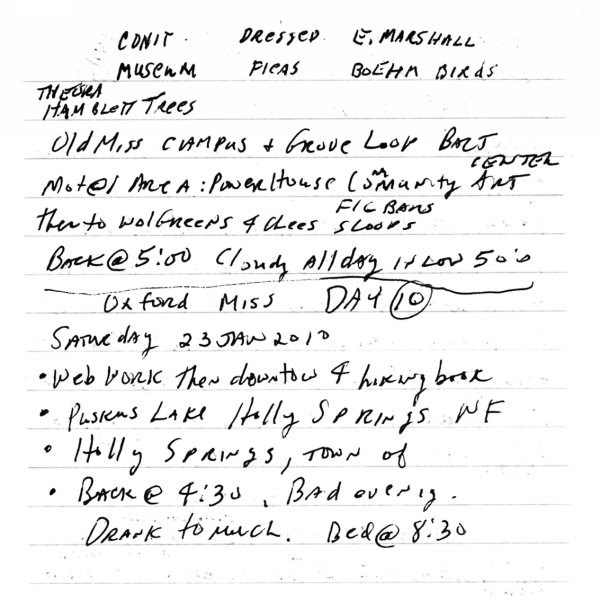 CONT. DRESSED E. MARSHALL
MUSEUM FLEAS BOEHM BIRDS
THEORA
HAMBLETT TREES
Old Miss CAMPUS & GROVE LOOP
CENTER
Motel AREA: POWERHOUSE Community ART
FIG BARS
then to WOLGREENS 4
BACK @ 5:00 Cloudy All day IN LOW 50's
OXFORD MISS DAY 10
SATURDAY 23 JAN 2010
• Web WORK then downtow 4 hiking book
• PUSKUS LAKE Holly SPRINGS NF
• Holly SPRINGS, TOWN of
• BACK @ 4:30, BAD evenig.
DRANK to much. Bed @ 8:30